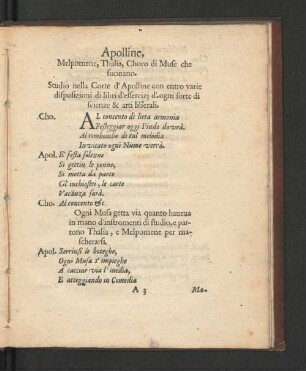 Apolline,
Melpomene, Thalia, Choro di Muse che
suonano.
Studio nella Corte d'Apolline con entro varie
disposizioni di libri d'essercizj d'ogni sorte di
scienze & arti liberali.
Cho. AL concento di lieta armonia
Festeggiar oggi Pindo dovrà.
Al rimbombo di tal melodia
Invitato ogni Nume verrà.
Apol. E' festa solenne
Si gettin le penne,
Si metta da parte
Gl'inchiostri, le carte
Vacanza sarà.
Cho. Al concento &c.
Ogni Musa getta via quanto haueua
in mano d'instromenti di studio, e par-
tono Thalia, e Melpomene per ma-
scherarsi.
Apol. Serrinsi le boteghe,
Ogni Musa s'impieghe
A cacciar via l'inedia,
E atteggiando in Comedia
A 3 Me-